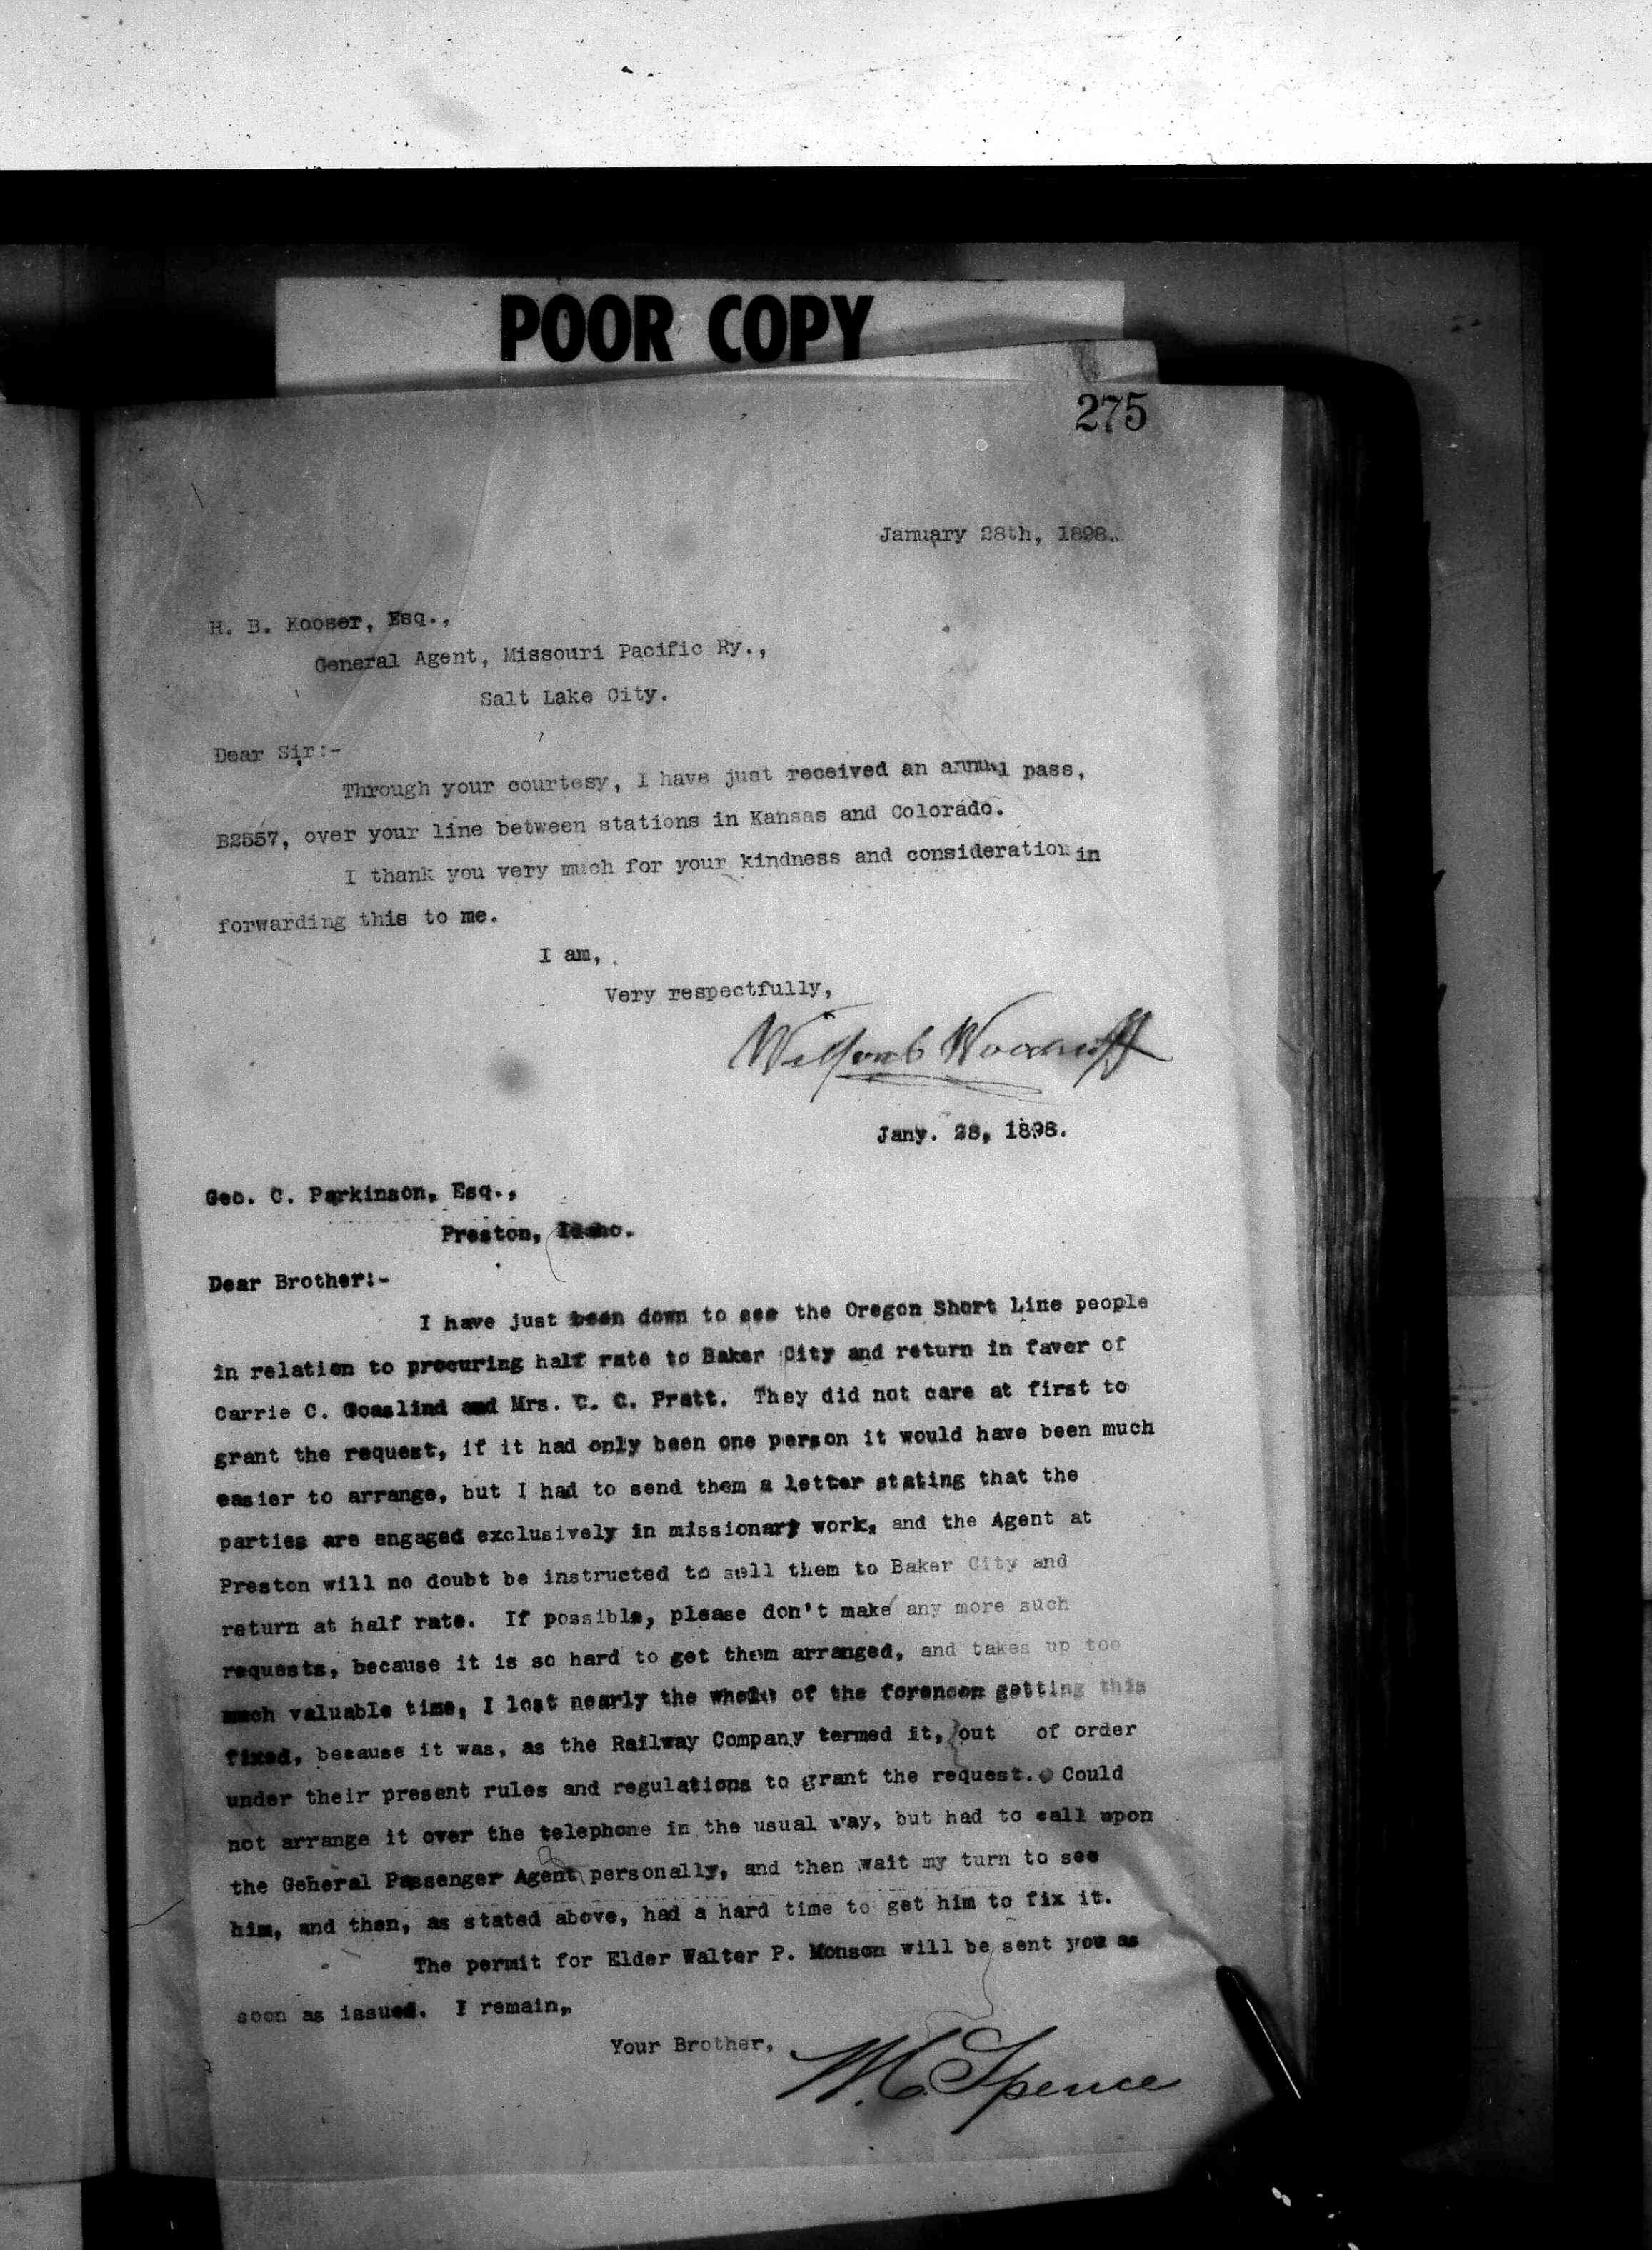 POOR COPY
275
January 28th, 1898.
H. B. Kooser, Esq.,
General Agent, Missouri Pacific Ry.,
Salt Lake City.
Dear Sir:-
Through your courtesy, I have just received an annual pass,
B2557, over your line between stations in Kansas and Colorado.
I thank you very much for your kindness and consideration in
forwarding this to me.
I am,
Very respectfully,
Wilford Woodruff
Jany. 28, 1898.
Geo. C. Parkinson, Esq.,
Preston, Idaho.
Dear Brother:-
I have just been down to see the Oregon Short Line people
in relation to procuring half rate to Baker City and return in favor of
Carrie C. Goaslind and Mrs. C. C. Pratt. They did not care at first to
grant the request, if it had only been one person it would have been much
easier to arrange, but I had to send them a letter stating that the
parties are engaged exclusively in missionary work, and the Agent at
Preston will no doubt be instructed to sell them to Baker City and
return at half rate. If possible, please don't make any more such
requests, because it is so hard to get them arranged, and takes up too
much valuable time, I lost nearly the whole of the forenoon getting this
fixed, because it was, as the Railway Company termed it, out of order
under their present rules and regulations to grant the request. Could
not arrange it over the telephone in the usual way, but had to call upon
the General Passenger Agent personally, and then wait my turn to see
him, and then, as stated above, had a hard time to get him to fix it.
The permit for Elder Walter P. Monson will be sent you as
soon as issued. I remain,
Your Brother,
W. C. Spence